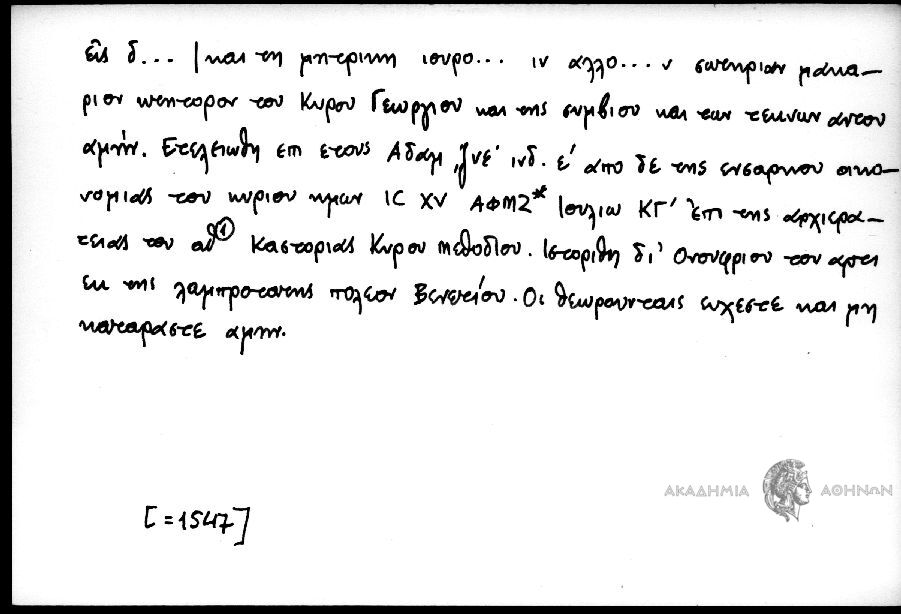 εἰς δ... | και τη μητρικη ιουρο... ιν αλλο...ν σωτηριαν μακα–
ριον κτητορον του Κυρου Γεωργιου και της συμβιου και των τεκνων αυτου
αμήν. Ετελειωθη επι ετους Αδαμ ,ζνε' ινδ. ε' απο δε της ενσαρκου οικο–
νομιας του κυριου ημων IC XV ΑΦΜΖ* Ιουλιω ΚΓ' ἐπι της αρχιερα–
τειας του ① Καστοριας Κυρου Μεθοδιου. Ιστοριθη δι' Ονουφριου του αρτι
εκ της λαμπροτατης πολεον Βενετίου. Οι θεωρουνταις ευχεστε και μη
καταραστε αμην.
[=1547]
ΑΚΑΔΗΜΙΑ ΑΘΗΝΩΝ